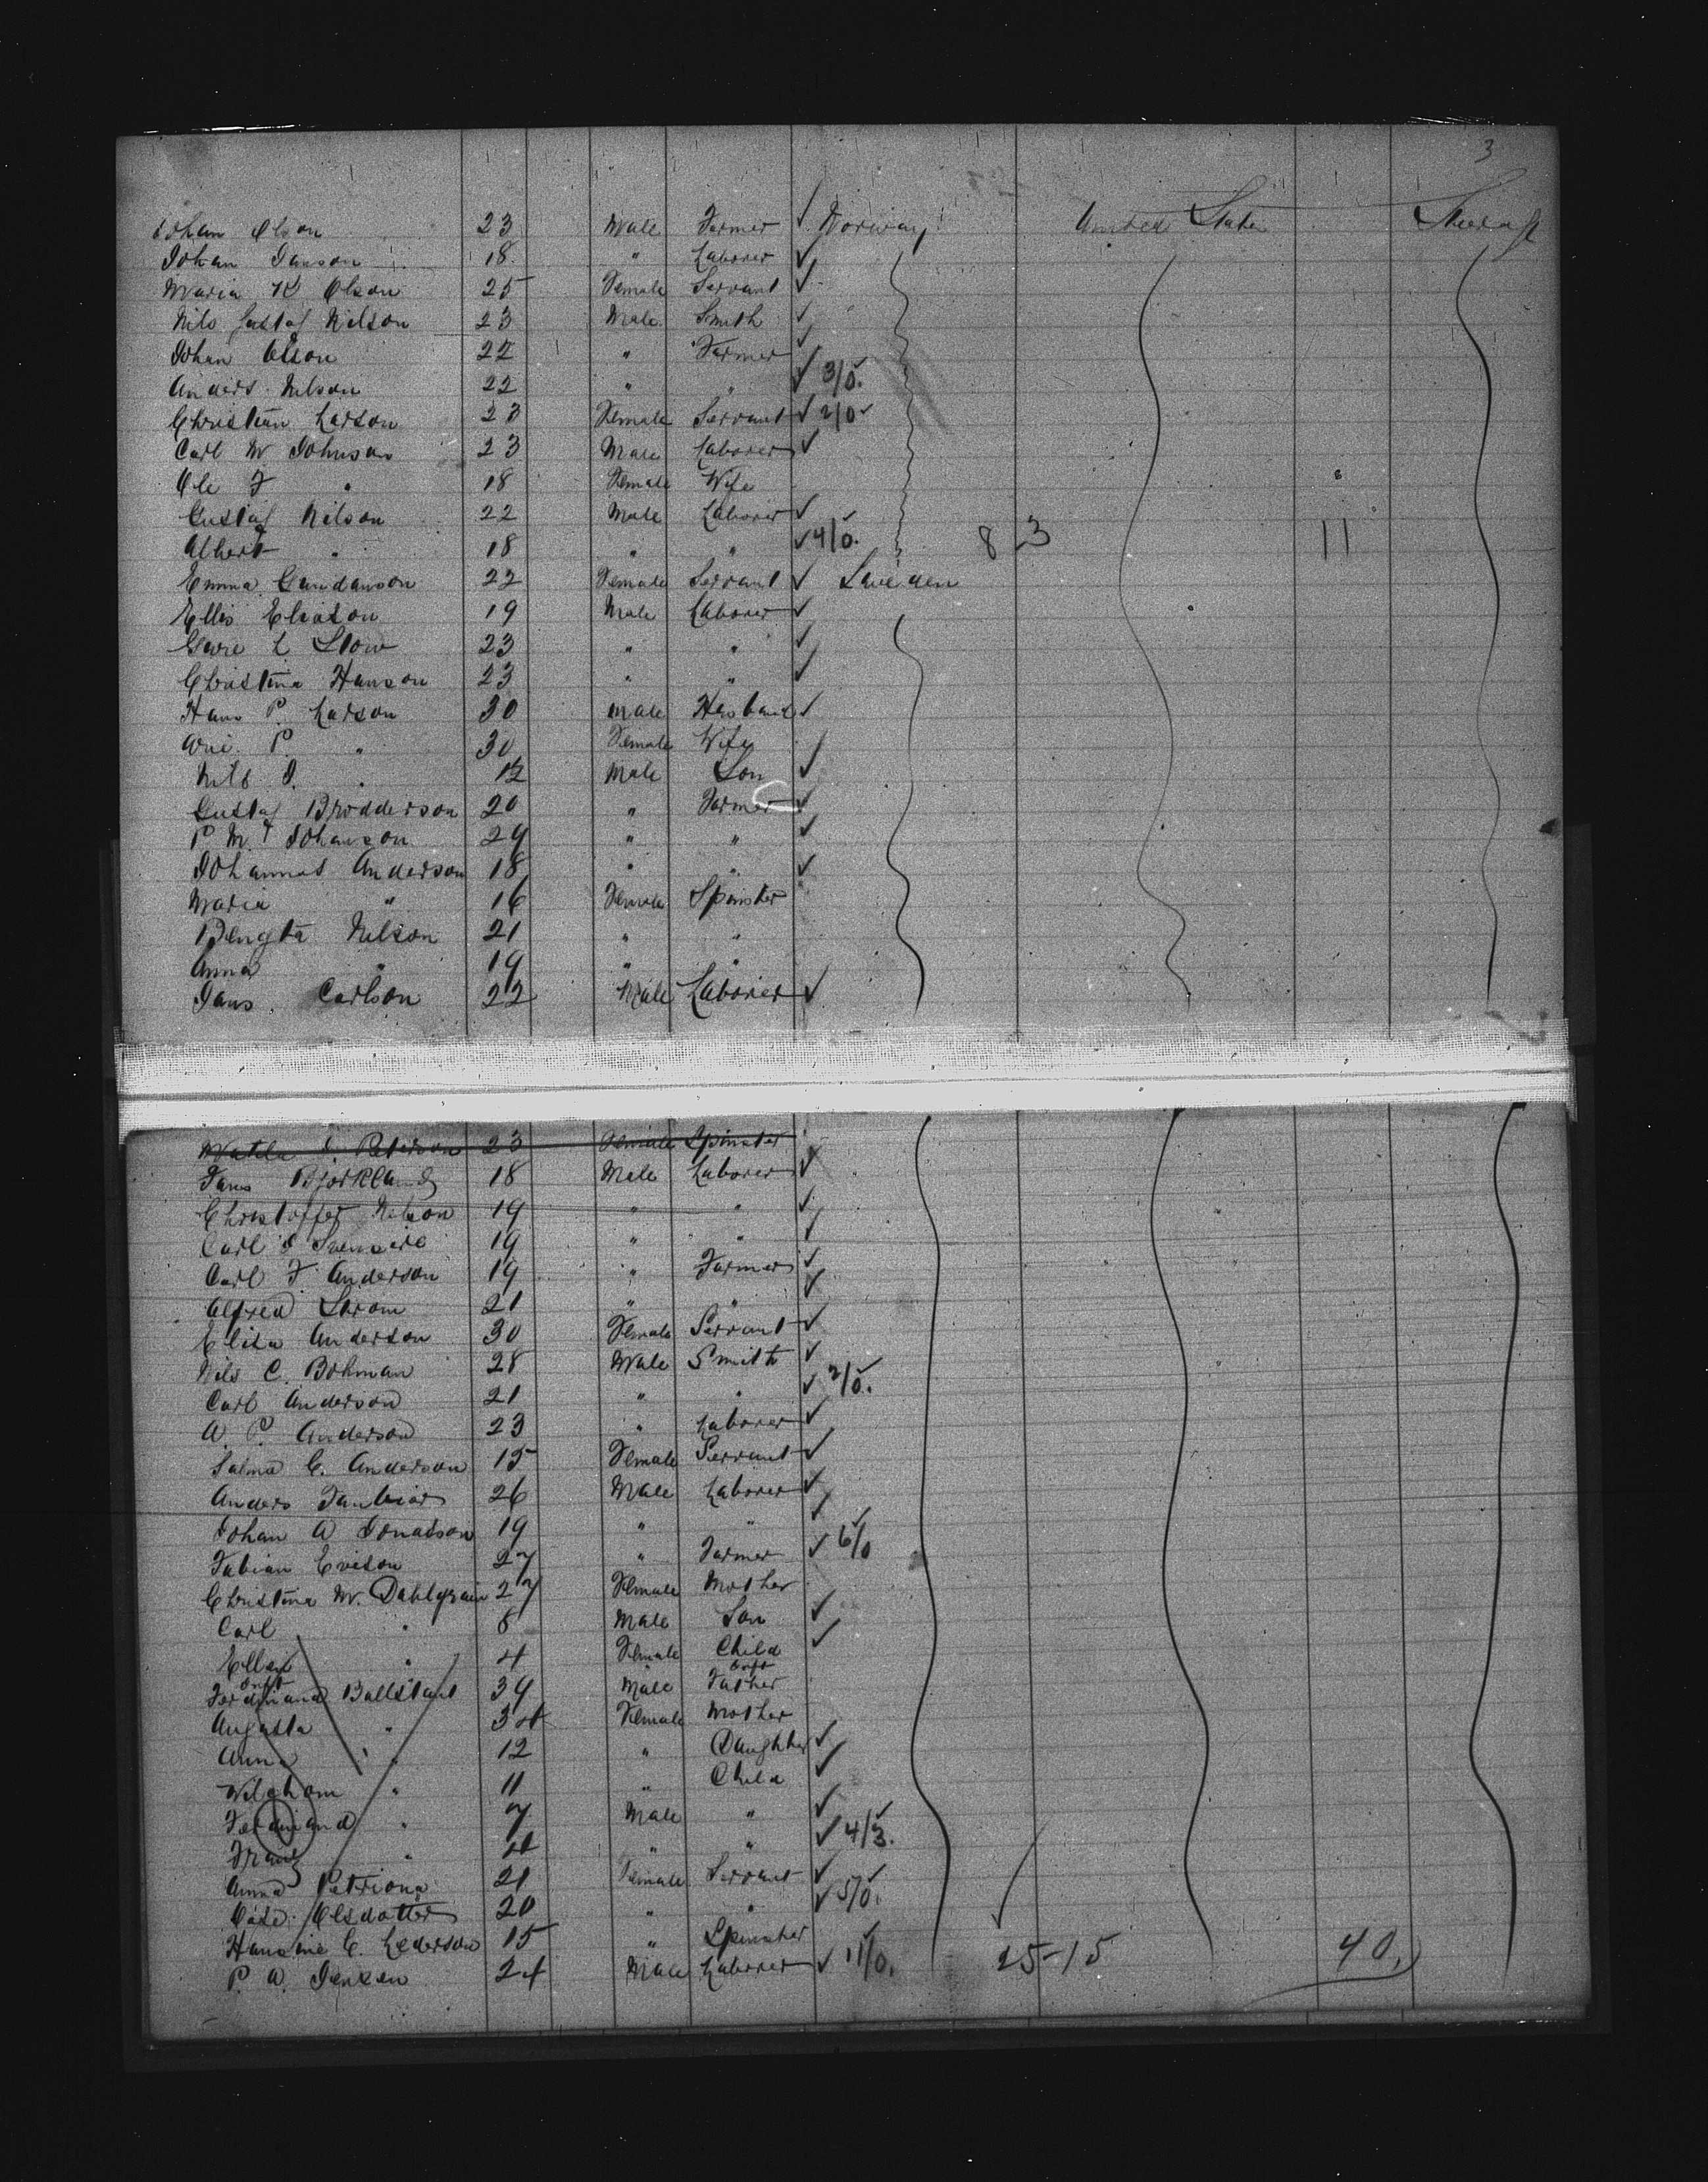 3
Johan Olson 23 Male Farmer ✓ Norway United State Steerage
Johan Janson 18 " Laborer ✓
Maria K Olson 25 Female Servant ✓
Nils Gustaf Nilson 23 Male Smith ✓
Johan Olson 22 " Farmer ✓
Anders Nelson 22 " " ✓ 3/0.
Christian Larson 23 Female Servant ✓ 2/0
Carl W Johnson 23 Male Laborer ✓
Ole F " 18 Female Wife
Gustaf Nilson 22 Male Laborer ✓
Albert " 18 " " ✓ 4/0. 8 - 3 11
Emma Gundanson 22 Female Servant ✓ Sweden
Ellis Eliason 19 Male Laborer ✓
L Stow 23 " " ✓
Christina Hanson 23 " " ✓
Hans P. Larson 30 Male Husband ✓
P. " 30 Female Wife
Nils " 12 Male Son ✓
Gustaf Brodderson 20 " Farmer ✓
P M Johanson 29 " " ✓
Johannes Anderson 18 " " ✓
Maria " 16 Female Spinster
Bengta Nelson 21 " "
Anna " 19 " "
Jans Carlson 22 Male Laborer ✓
Peterson 23 Female Spinster
Jans Bjorkland 18 Male Laborer ✓
Christoffer Nelson 19 " " ✓
Carl 19 " " ✓
Carl F Anderson 19 " Farmer ✓
Alfred Strom 21 " " ✓
Elisa Anderson 30 Female Servant ✓
Nils C. Bohman 28 Male Smith ✓
Carl Anderson 21 " " ✓ 2/0.
A. P. Anderson 23 " Laborer ✓
Salma C. Anderson 15 Female Servant ✓
Anders 26 Male Laborer ✓
Johan A Jonason 19 " " ✓
Fabian 27 " Farmer ✓ 6/0
Christina M. Dahlgrain 27 Female Mother
Carl " 8 Male Son ✓
Ellen " 4 Female Child ✓
Ferdinand Ballstant 39 Male Father
Augusta " 34 Female Mother
Anna " 12 " Daughter ✓
" 11 " Child ✓
Ferdinand " 7 Male " ✓
Franz " " " ✓ 4/3.
Anna 21 Female Servant ✓
Olsdotter 20 " " ✓ 5/0.
Hansine C. Lederson 15 " Spinster
P. A. Jensen 24 Male Laborer ✓ 11/0. 25-15 40.